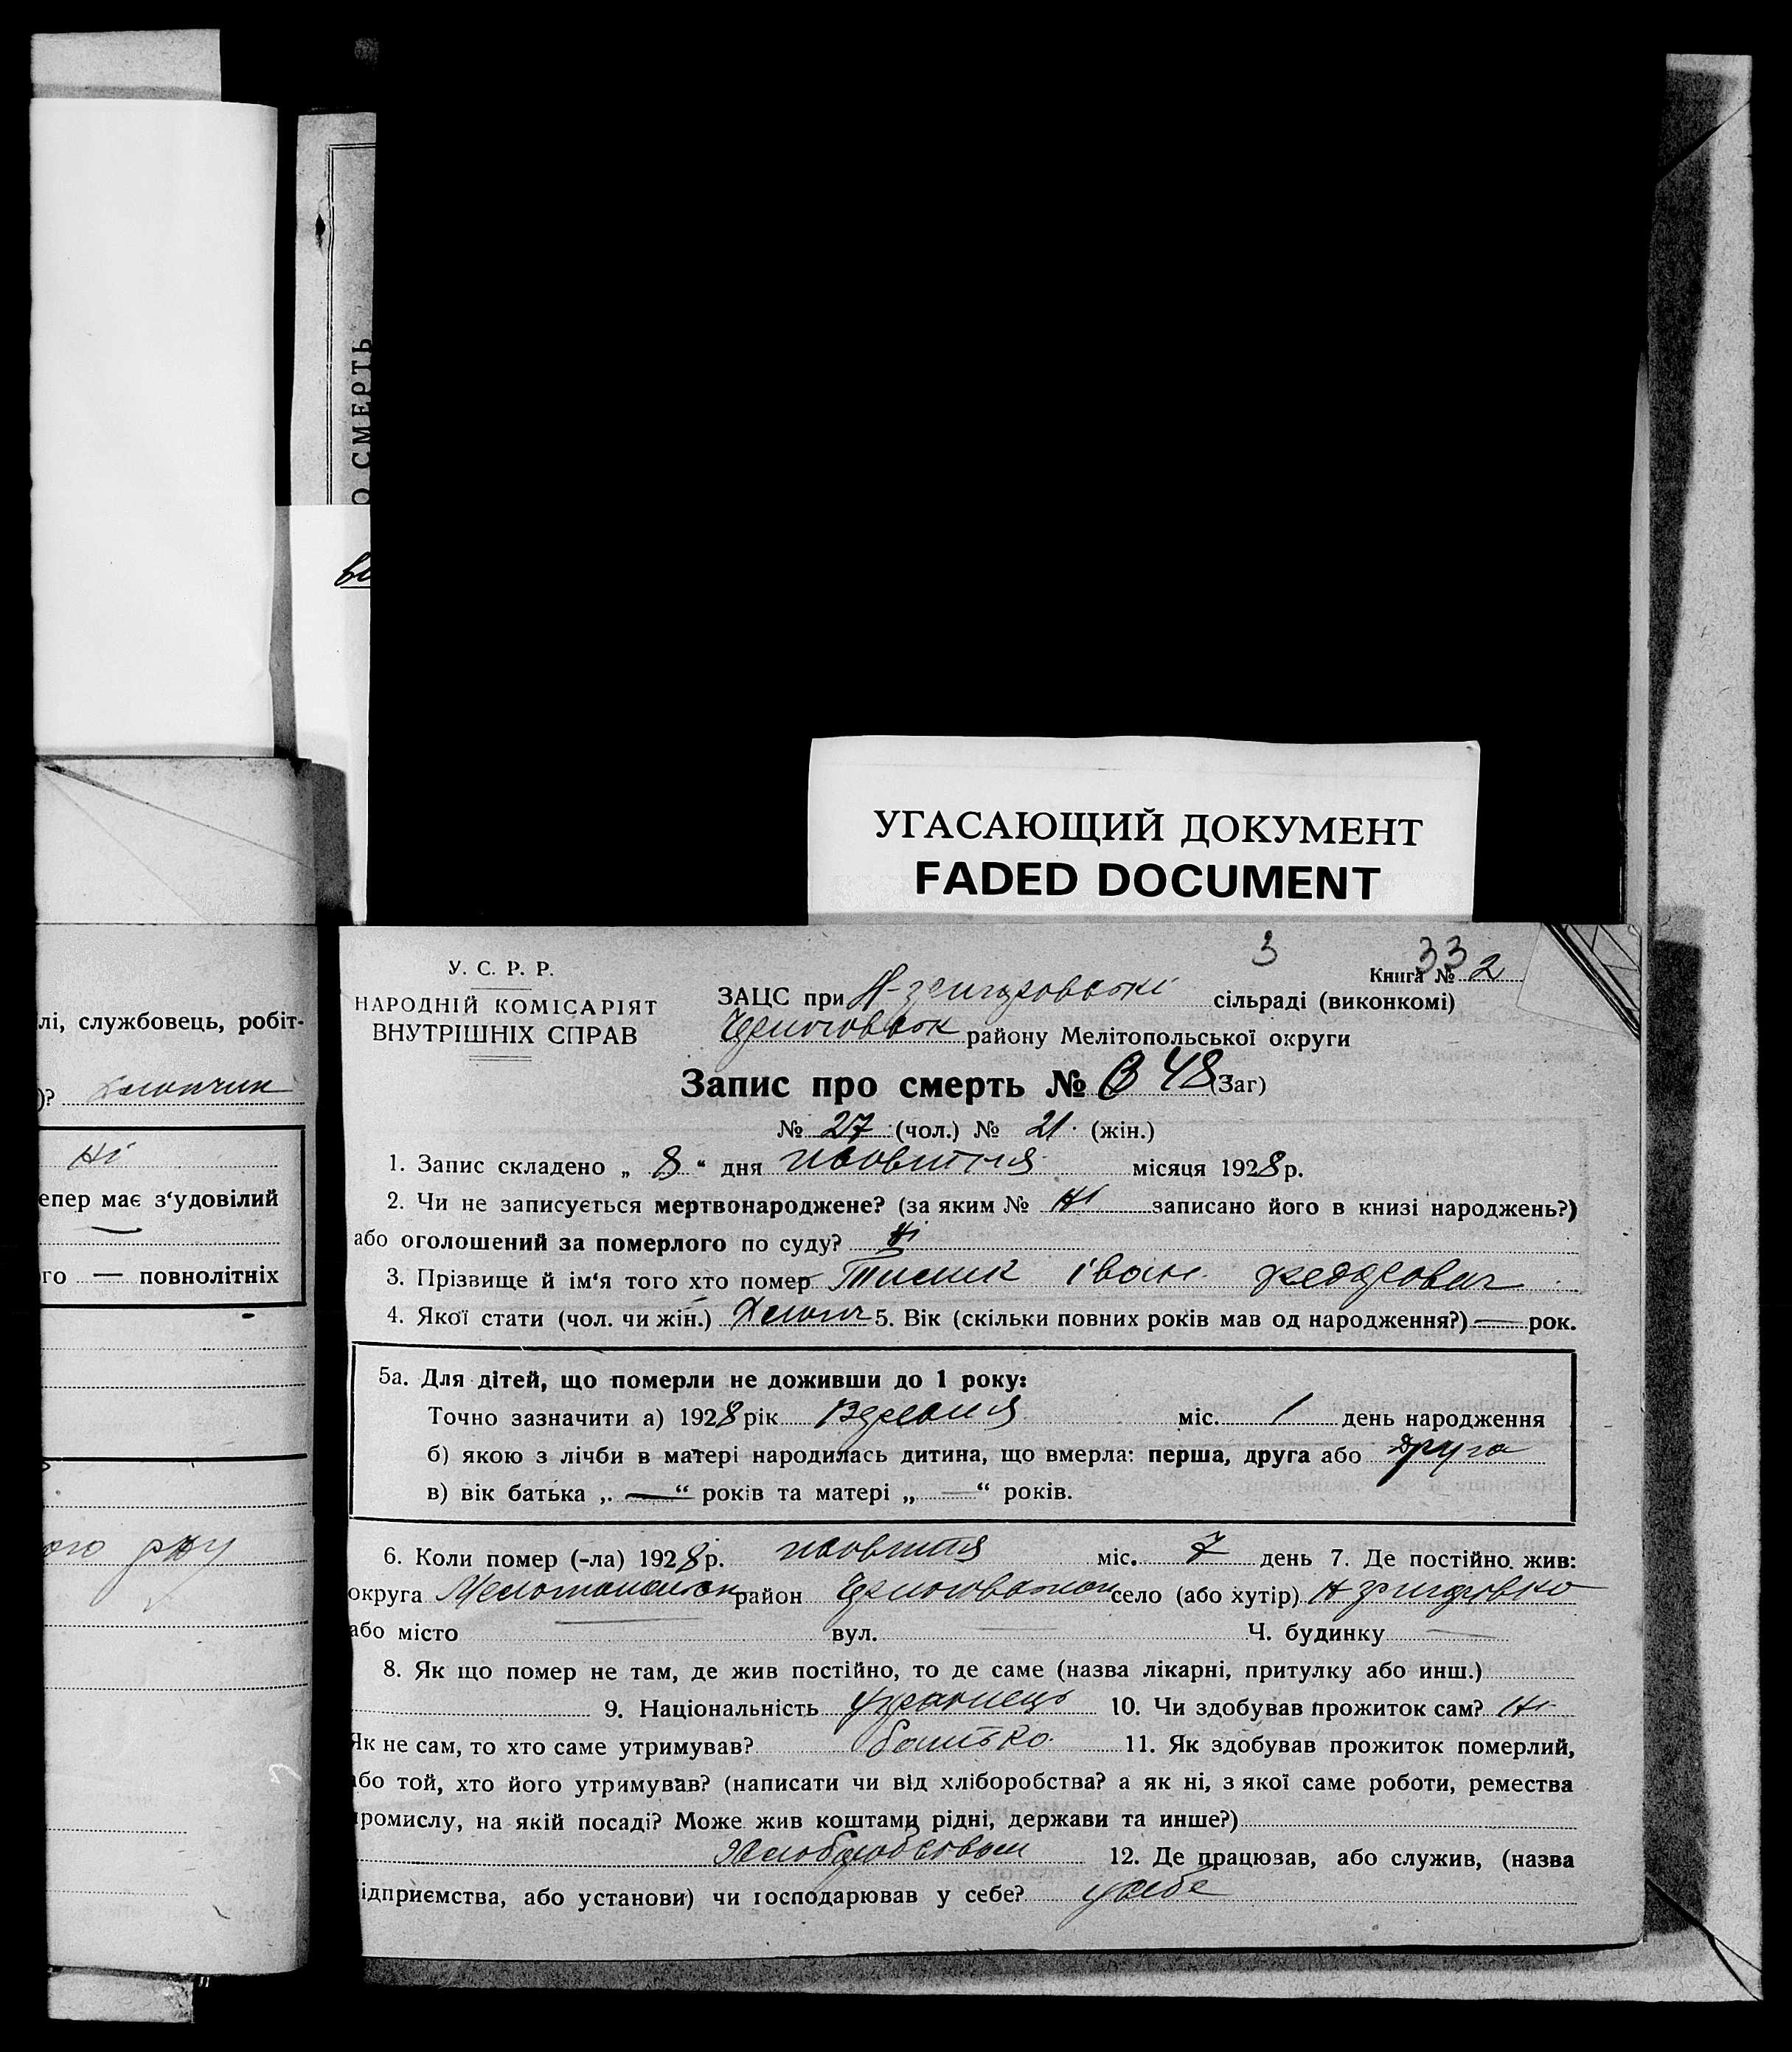 О СМЕРТЬ
УГАСАЮЩИЙ ДОКУМЕНТ
FADED DOCUMENT
лі, службовець, робіт-
)? хлопчик
Ні
епер має з'удовілий
—
го — повнолітніх
ого
3 33
У. С. Р. Р.
НАРОДНІЙ КОМІСАРІЯТ
ВНУТРІШНІХ СПРАВ
Книга № 2
ЗАЦС при сільраді (виконкомі)
району Мелітопольської округи
Запис про смерть № 48 (Заг)
№ 27 (чол.) № 21 (жін.)
1. Запис складено „ 8 “ дня жовтня місяця 1928 р.
2. Чи не записується мертвонароджене? (за яким № Ні записано його в книзі народжень?)
або оголошений за померлого по суду? Ні
3. Прізвище й ім'я того хто помер іван федорович
4. Якої стати (чол. чи жін.) Хлопч 5. Вік (скільки повних років мав од народження?) — рок.
5а. Для дітей, що померли не доживши до 1 року:
Точно зазначити а) 1928 рік міс. 1 день народження
б) якою з лічби в матері народилась дитина, що вмерла: перша, друга або друга
в) вік батька „ — “ років та матері „ — “ років.
6. Коли помер (-ла) 1928 р. жовтня міс. 7 день 7. Де постійно жив:
округа район село (або хутір)
або місто вул. — Ч. будинку —
8. Як що помер не там, де жив постійно, то де саме (назва лікарні, притулку або инш.)
9. Національність 10. Чи здобував прожиток сам? Ні
Як не сам, то хто саме утримував? батько 11. Як здобував прожиток померлий,
або той, хто його утримував? (написати чи від хліборобства? а як ні, з якої саме роботи, ремества
промислу, на якій посаді? Може жив коштами рідні, держави та инше?)
12. Де працював, або служив, (назва
ідприємства, або установи) чи господарював у себе? у себе